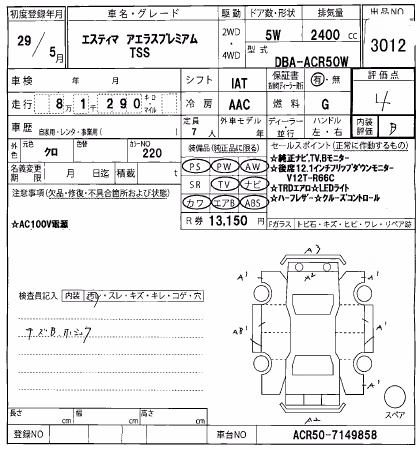 初度登録年月 車名・グレード 駆動 ドア数・形状 排気量 出品NO
29年 5月 エスティマ アエラスプレミアム TSS 2WD・4WD 5W 2400 CC 3012
型式 DBA-ACR50W
車検 年 月 シフト IAT 保証書 有・無 評価点
走行 8万1千290 キロ・マイル 冷房 AAC 燃料 G 4
車歴 自家用・レンタ・事業用( ) 定員 7人 外車モデル 年 ディーラー・並行 ハンドル 左・右 内装評価 B
外色 クロ カラーNO 220 装備品(純正品に限る) セールスポイント(正常に作動するもの)
名義変更期限 月 日迄 積載 t PS PW AW ★純正ナビ,TV,Bモニター
注意事項(欠品・修復・不具合箇所および状態) SR TV ナビ ★後席12.1インチフリップダウンモニター
V12T-R66C
カワ エアB ABS ★TRDエアロ☆LEDライト
★AC100V電源 R券 13,150円 ★ハーフレザー☆クルーズコントロール
Fガラス トビ石・キズ・ヒビ・ワレ・リペア跡
検査員記入 内装 汚れ・スレ・キズ・キレ・コゲ・穴
A2
A1
A1
A1
A1
A1
A2
スペア
長さ cm 幅 cm 高さ cm
登録NO 車台NO ACR50-7149858